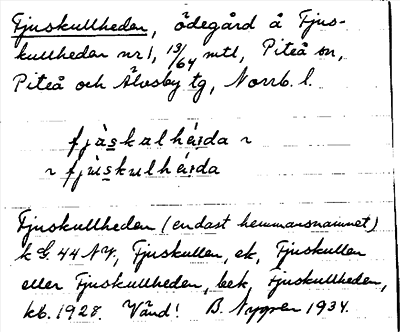 Fjuskullheden, ödegård å Fjus-
kullheden nr 1, 13/64 mtl, Piteå sn,
Piteå och Älvsby tg, Norrb. l.
Fjuskullheden (endast hemmansnamnet)
44 NV, Fjuskullen, ek, Fjuskullen
eller Fjuskullheden, bek, Fjuskullheden,
kb. 1928. Vänd! B. Nygren 1934.